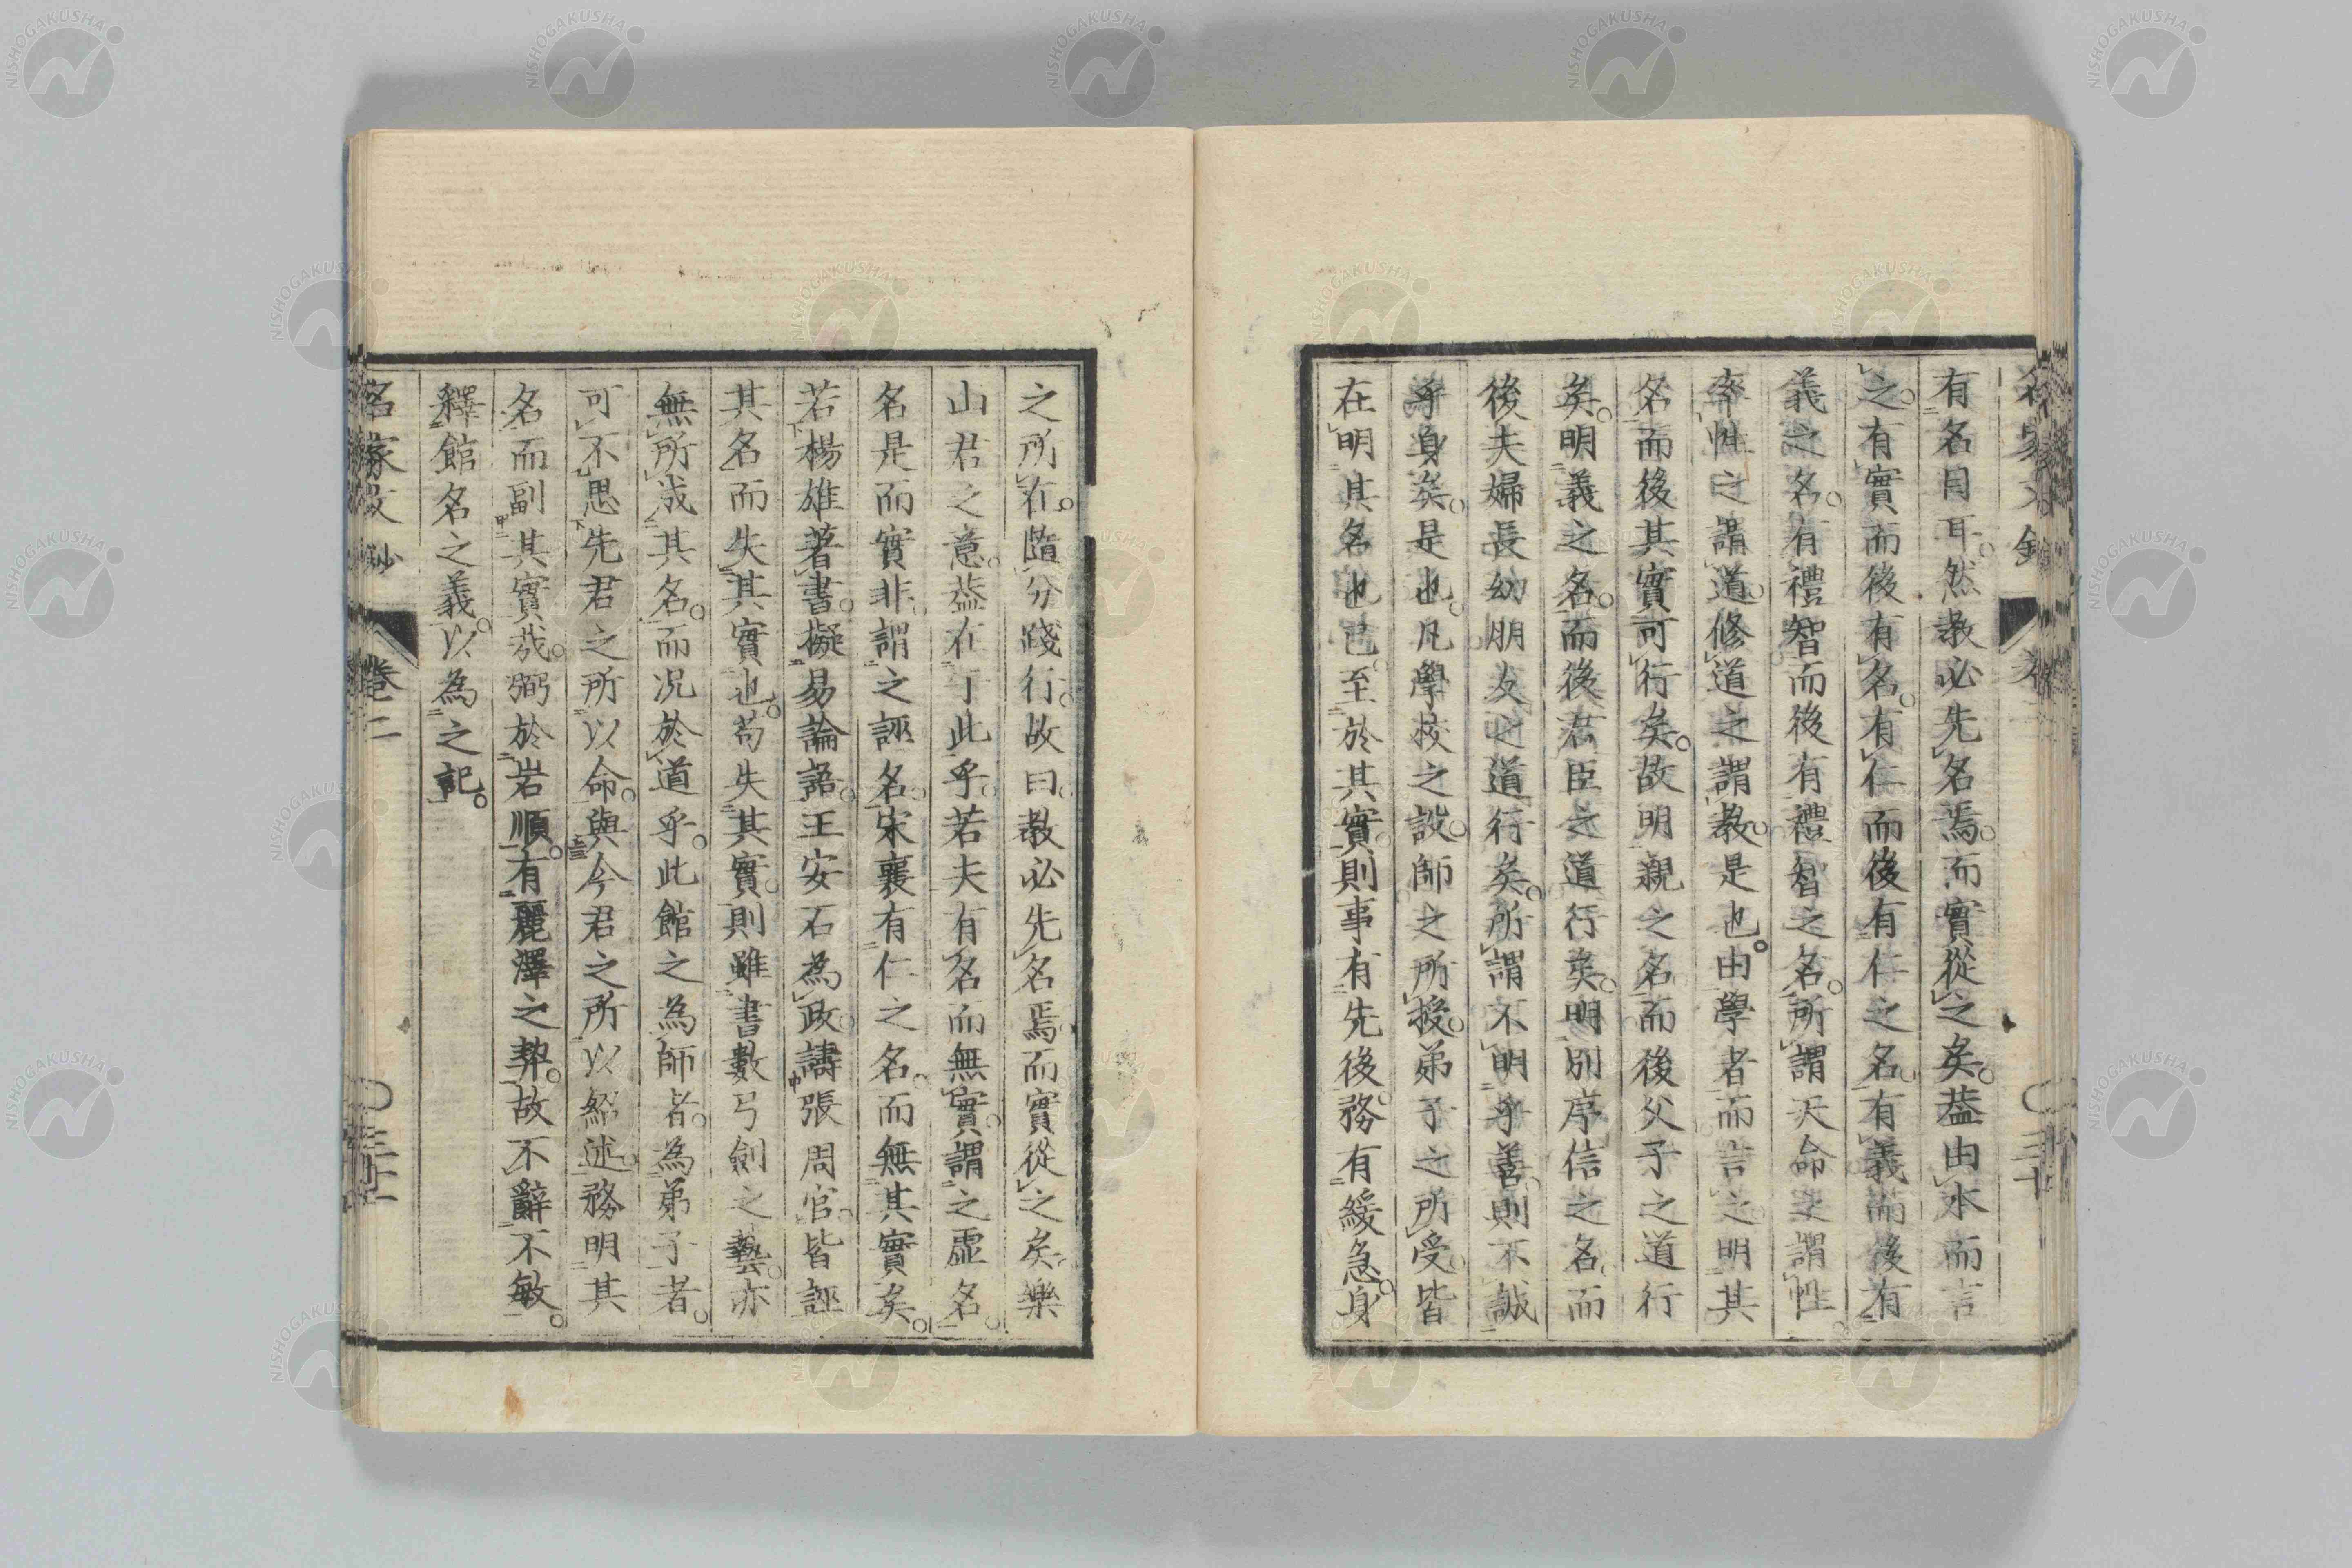 有名目耳。然教必先名焉。而實從之矣。蓋由本而言
之。有實而後有名。有仁而後有仁之名。有義而後有
義之名。有禮智而後有禮智之名。所謂天命之謂性
率性之謂道。修道之謂教。是也。由學者而言之。明其
名而後其實可行矣。故明親之名。而後父子之道行
矣。明義之名。而後君臣之道行矣。明別序信之名。而
後夫婦長幼朋友之道行矣。所謂不明乎善。則不誠
乎身矣。是也。凡學校之設。師之所授。弟子之所受。皆
在明其名也已。至於其實。則事有先後。務有緩急。身
之所在。隨分踐行。故曰。教必先名焉。而實從之矣。樂
山君之意。蓋在于此乎。若夫有名而無實。謂之虛名。
名是而實非。謂之誣名。宋襄有仁之名。而無其實矣。
若楊雄著書。擬易論語。王安石為政。譸張周官。皆誣
其名而失其實也。苟失其實。則雖書數弓劍之藝。亦
無所成其名。而況於道乎。此館之為師者。為弟子者。
可不思先君之所以命。與今君之所以紹述。務明其
名而副其實哉。弼於岩順。有麗澤之契。故不辭不敏。
釋館名之義。以為之記。
名家文鈔
卷二
NISHOGAKUSHA